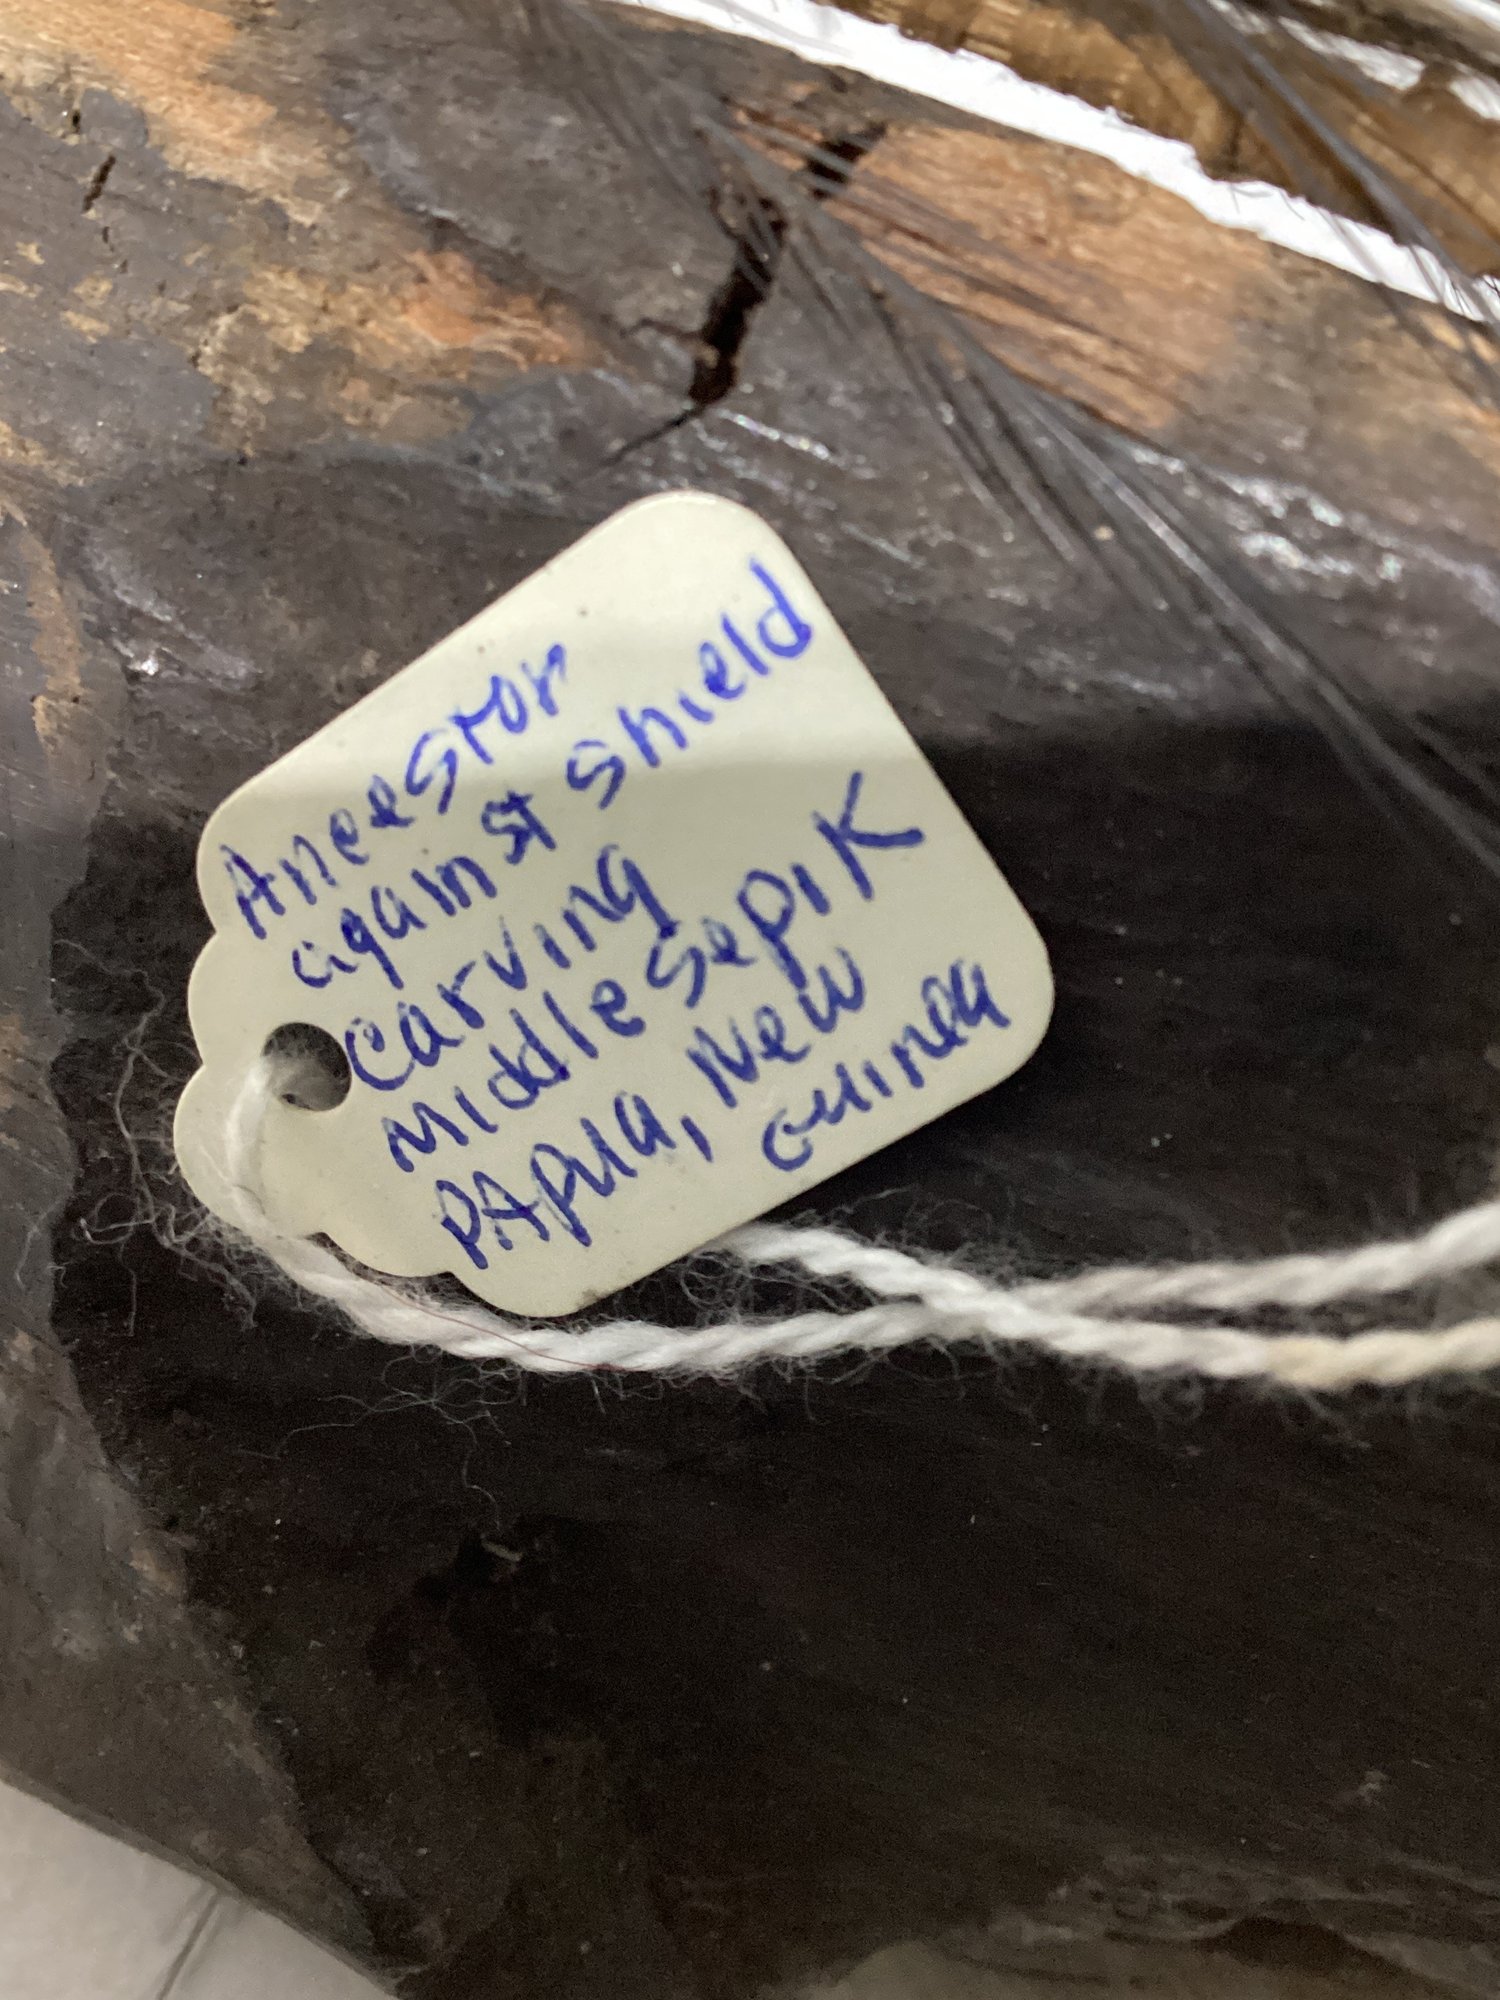 Ancestor
against shield
carving
Middle Sepik
PApua, New
Guinea